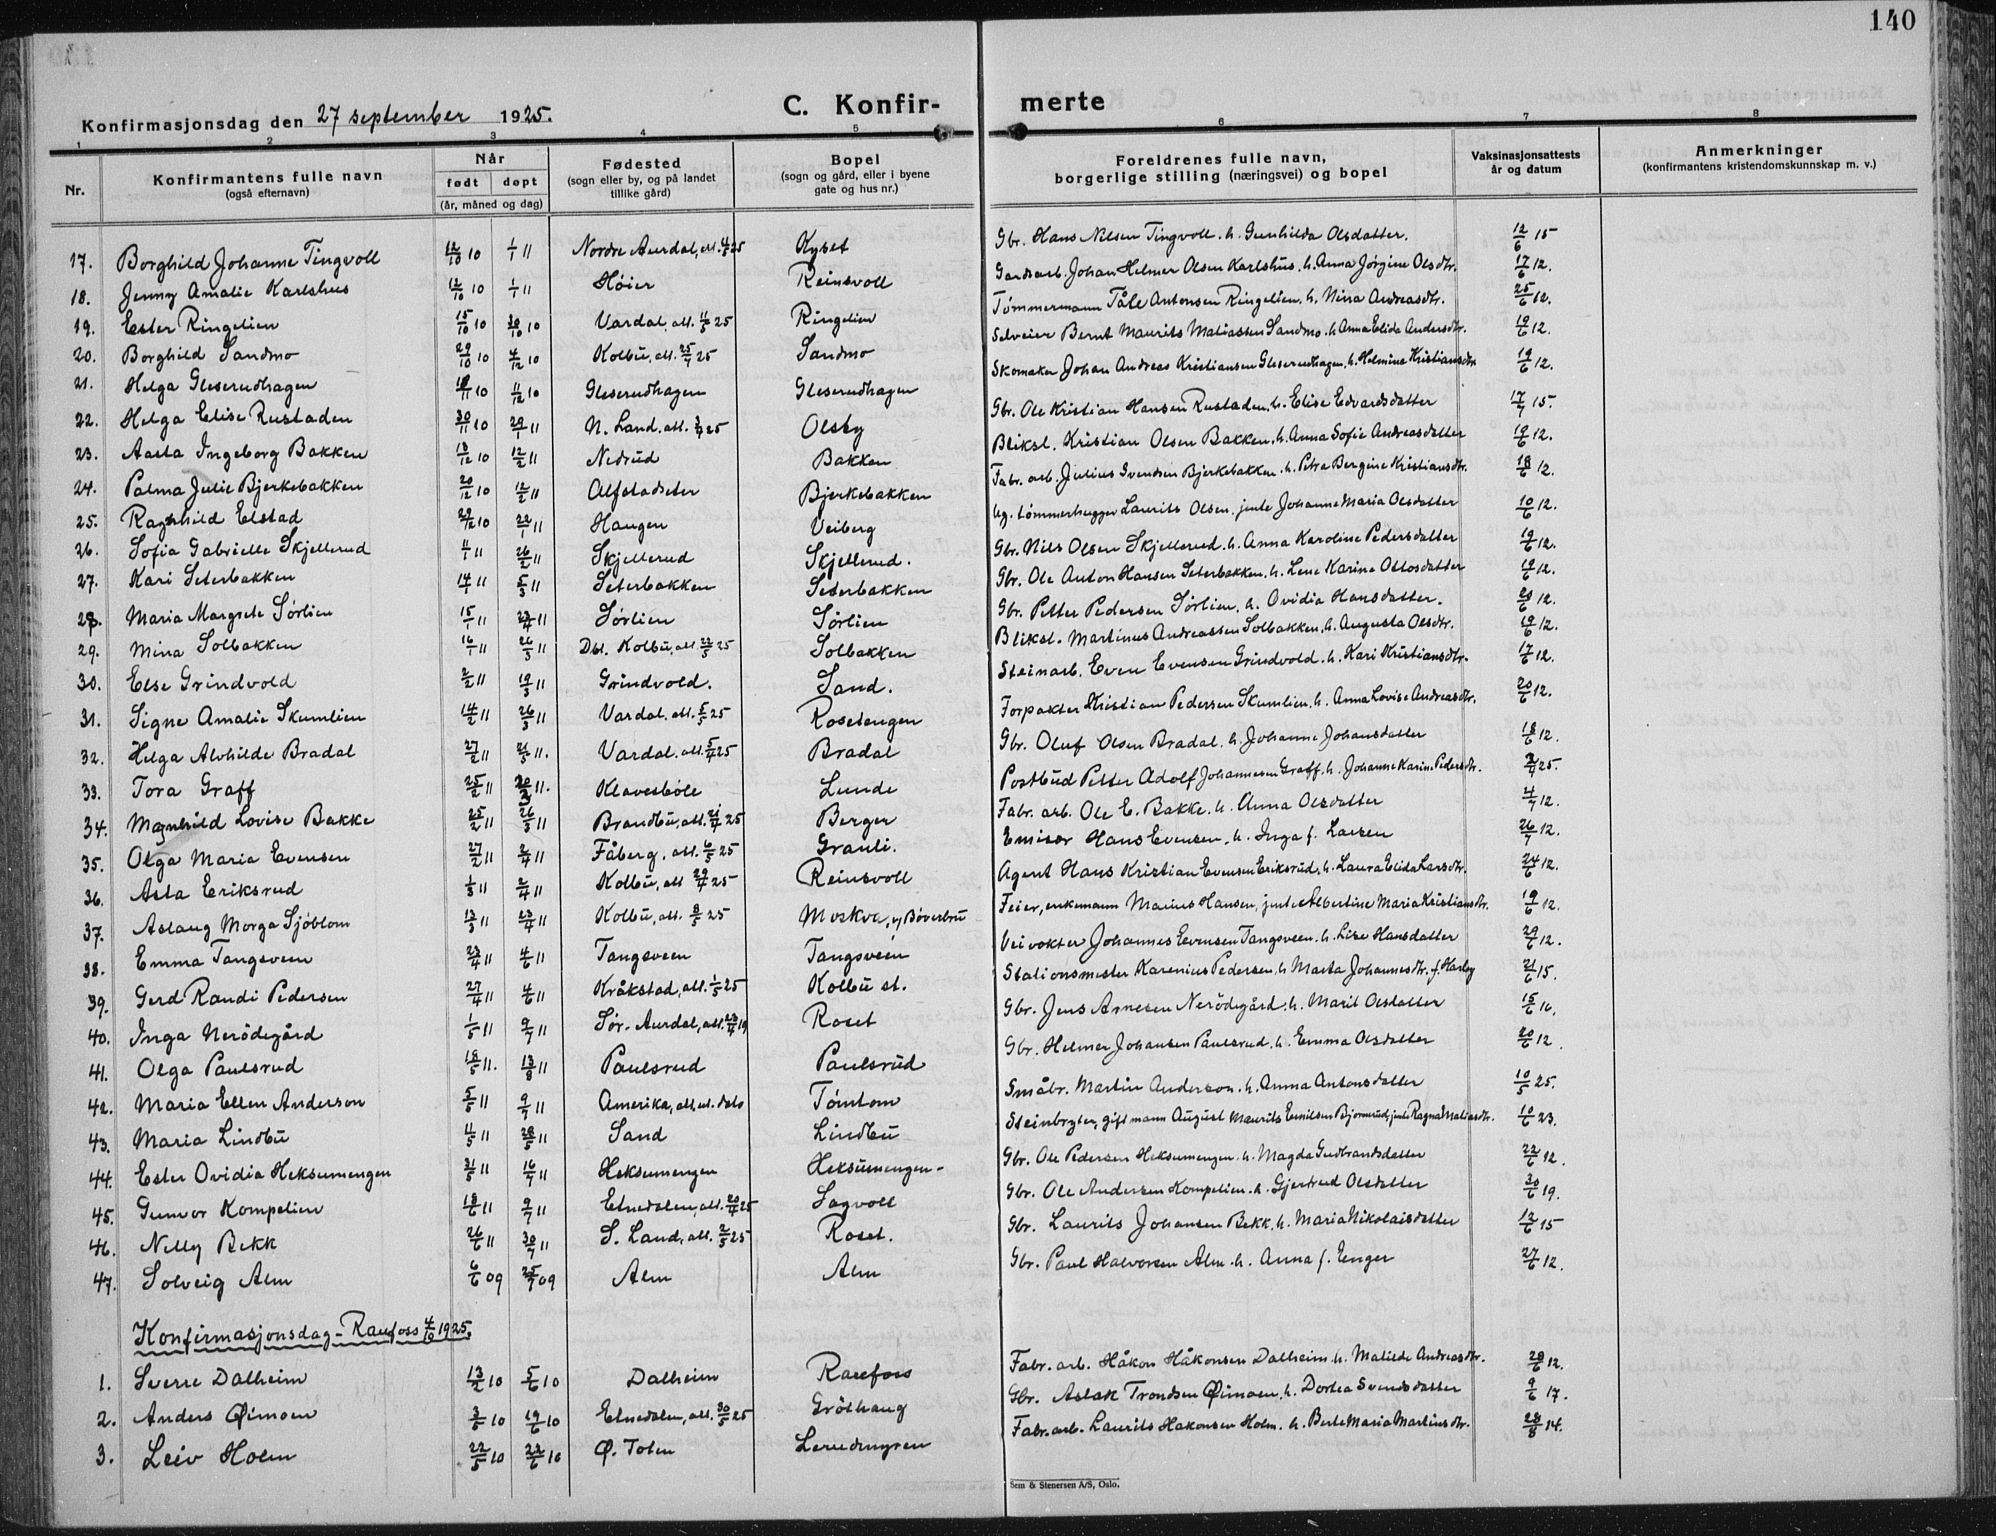 140
Konfirmasjonsdag den 27 september 1925.
C. Konfir-
merte
1 2 3 4 5 6 7 8
Nr.
Konfirmantens fulle navn
(også efternavn)
Når
født døpt
(år, måned og dag)
Fødested
(sogn eller by, og på landet
tillike gård)
Bopel
(sogn og gård, eller i byene
gate og hus nr.)
Foreldrenes fulle navn,
borgerlige stilling (næringsvei) og bopel
Vaksinasjonsattests
år og datum
Anmerkninger
(konfirmantens kristendomskunnskap m. v.)
17. Borghild Johanne Tingvoll 12/10 10 1/1 11 Nordre Aurdal, att. 4/5 25 Kyset Gbr. Hans Nilsen Tingvoll. h. Gunhilda Olsdatter. 12/6 15
18. Jenny Amalie Karlshus 12/10 10 1/1 11 Høier Reinsvoll Gardsarb. Johan Helmer Olsen Karlshus. h. Anna Jørgine Olsdtr. 17/6 12.
19. Ester Ringelien 15/10 10 30/10 10 Vardal, att. 11/5 25 Ringelien Tømmermann Tåle Antonsen Ringelien. h. Nina Andreasdtr. 25/6 12.
20. Borghild Sandmo 29/10 10 4/12 10 Kolbu, att. 25/7 25 Sandmo Selveier Bernt Maurits Matiassen Sandmo. h. Anna Elida Andersdtr. 19/6 12.
21. Helga Gleserudhagen 11 10 11/12 10 Gleserudhagen Gleserudhagen Skomaker Johan Andreas Kristiansen Gleserudhagen, h. Helmine Kristiansdtr. 19/6 12.
22. Helga Elise Rustaden 30/11 10 29/1 11 N. Land. att. 3/4 25 Olsby Gbr. Ole Kristian Hansen Rustaden. h. Elise Edvardsdatter 17/7 15.
23. Aasta Ingeborg Bakken 13/12 10 12/2 11 Nedrud Bakken Bliksl. Kristian Olsen Bakken. h. Anna Sofie Andreasdatter 19/6 12.
24. Palma Julie Bjerkebakken 20/12 10 12/2 11 Alfstadseter Bjerkebakken Fabr. arb. Julius Svendsen Bjerkebakken. h. Petra Bergine Kristiansdtr. 18/6 12.
25. Ragnhild Elstad 29/12 10 22/1 11 Haugen Veiberg Ug. tømmerhugger Laurits Olsen. jente Johanne Maria Olsdatter 10/6 12.
26. Sofia Gabrielle Skjellerud 4/1 11 26/2 11 Skjellerud Skjellerud. Gbr. Nils Olsen Skjellerud. h. Anna Karoline Pedersdatter 19/6 12.
27. Kari Seterbakken 14/1 11 5/3 11 Seterbakken Seterbakken Gbr. Ole Anton Hansen Seterbakken. h. Lene Karine Ottosdatter 19/6 12.
28. Maria Margrete Sørlien 15/1 11 23/4 11 Sørlien Sørlien Gbr. Petter Pedersen Sørlien. h. Ovidia Hansdatter. 20/6 12.
29. Mina Solbakken 16/1 11 26/3 11 Dbt. Kolbu, att. 22/5 25 Solbakken Bliksl. Martinus Andreassen Solbakken. h. Augusta Olsdtr. 19/6 12.
30. Else Grindvold 2/2 11 19/3 11 Grindvold. Sand. Steinarb. Even Evensen Grindvold. h. Kari Kristiansdtr. 17/6 12.
31. Signe Amalie Skumlien 14/2 11 26/3 11 Vardal. att. 5/5 25 Rosetengen Forpakter Kristian Pedersen Skumlien, h. Anna Lovise Andreasdtr. 20/6 12.
32. Helga Alvhilde Bradal 27/2 11 11. Vardal. att. 5/4 25 Bradal Gbr. Oluf Olsen Bradal. h. Johanne Johansdatter 18/6 12.
33. Tora Graff 25/2 11 11. Klavesbøle Lunde Postbud Petter Adolf Johannesen Graff. h. Johanne Karin Pedersdtr. 25.
34. Magnhild Lovise Bakke 25/2 11 26/3 11 Brandbu, att. 21/4 25 Berger Fabr. arb. Ole E. Bakke. h. Anna Olsdatter 4/7 12.
35. Olga Maria Evensen 27/2 11 2/4 11 Fåberg. att. 6/5 25 Granli. Emisær Hans Evensen. h. Inga f. Larsen 26/7 12.
36. Asta Eriksrud 1/3 11 2/4 11 Kolbu, att 29/4 25 Reinsvoll Agent Hans Kristian Evensen Eriksrud. h. Laura Elida Larsdtr. 24/6 12.
37. Aslaug Morga Sjöblom 13/3 11 23/4 11 Kolbu, att. 8/5 25 Moskva, v/Bøverbru Feier, enkemann Marius Hansen, jente Albertine Maria Kristiansdtr. 19/6 12.
38. Emma Tangsveen 23/4 11 4/6 11 Tangsveen Tangsveen Veivokter Johannes Evensen Tangsveen. h. Lise Hansdatter 29/6 12.
39. Gerd Randi Pedersen 27/4 11 4/6 11 Kråkstad, att. 1/5 25 Kolbu st. Stationsmester Karenius Pedersen, h. Marta Johannesdtr. f. Harby 21/6 15.
40. Inga Nerödegård 1/5 11 9/7 11 Sør-Aurdal, att. 23/4 19 Roset Gbr. Jens Arnesen Nerödegård. h. Marit Olsdatter 15/6 16.
41. Olga Paulsrud 18/5 11. 13/8 11 Paulsrud Paulsrud Gbr. Helmer Johansen Paulsrud. h. Emma Olsdatter 20/6 12.
42. Maria Ellen Anderson 5/5 11 9/7 11 Amerika, att. ut. dato Tømtom Småbr. Martin Anderson. h. Anna Antonsdatter 10/5 25.
43. Maria Lindbu 4/5 11 28/5 11 Sand Lindbu Steinbryter, gift mann August Maurits Emilsen Bjørnrud, jente Ragna Matiasdtr. 10/6 23.
44. Ester Ovidia Heksumengen 31/5 11 16/7 11 Heksumengen Heksumengen- Gbr. Ole Pedersen Heksumengen. h. Magda Gudbrandsdatter 22/6 12.
45. Gunvor Kompelien 18/6 11 9/7 11 Etnedalen, att. 20/4 25 Sagvoll Gbr. Ole Andersen Kompelien. h. Gjertrud Olsdatter 30/6 19.
46. Nelly Bekk 26/6 11 30/7 11 S. Land, att. 2/5 25 Roset. Gbr. Laurits Johansen Bekk. h. Maria Nikolaisdatter 12/6 15
47. Solveig Alm 6/6 09 25/7 09 Alm Alm Gbr. Paul Halvorsen Alm. h. Anna f. Enger 27/6 12.
Konfirmasjonsdag - Raufoss 4/10 1925.
1. Sverre Dalheim 13/2 10 5/6 10 Dalheim Raufoss Fabr. arb. Håkon Håkonsen Dalheim. h. Matilde Andreasdtr. 28/6 12.
2. Anders Øimoen 3/5 10 19/6 10 Etnedalen, att. 30/5 25 Gröthaug Gbr. Aslak Trondsen Øimoen, h. Dortea Svendsdatter 9/6 17.
3. Leiv Holm 22/5 10 22/6 10 Ø. Toten Lerudmyren Fabr. arb. Laurits Hakonsen Holm. h. Berte Maria Martinsdtr. 28/8 14.
Sem & Stenersen A/S, Oslo.